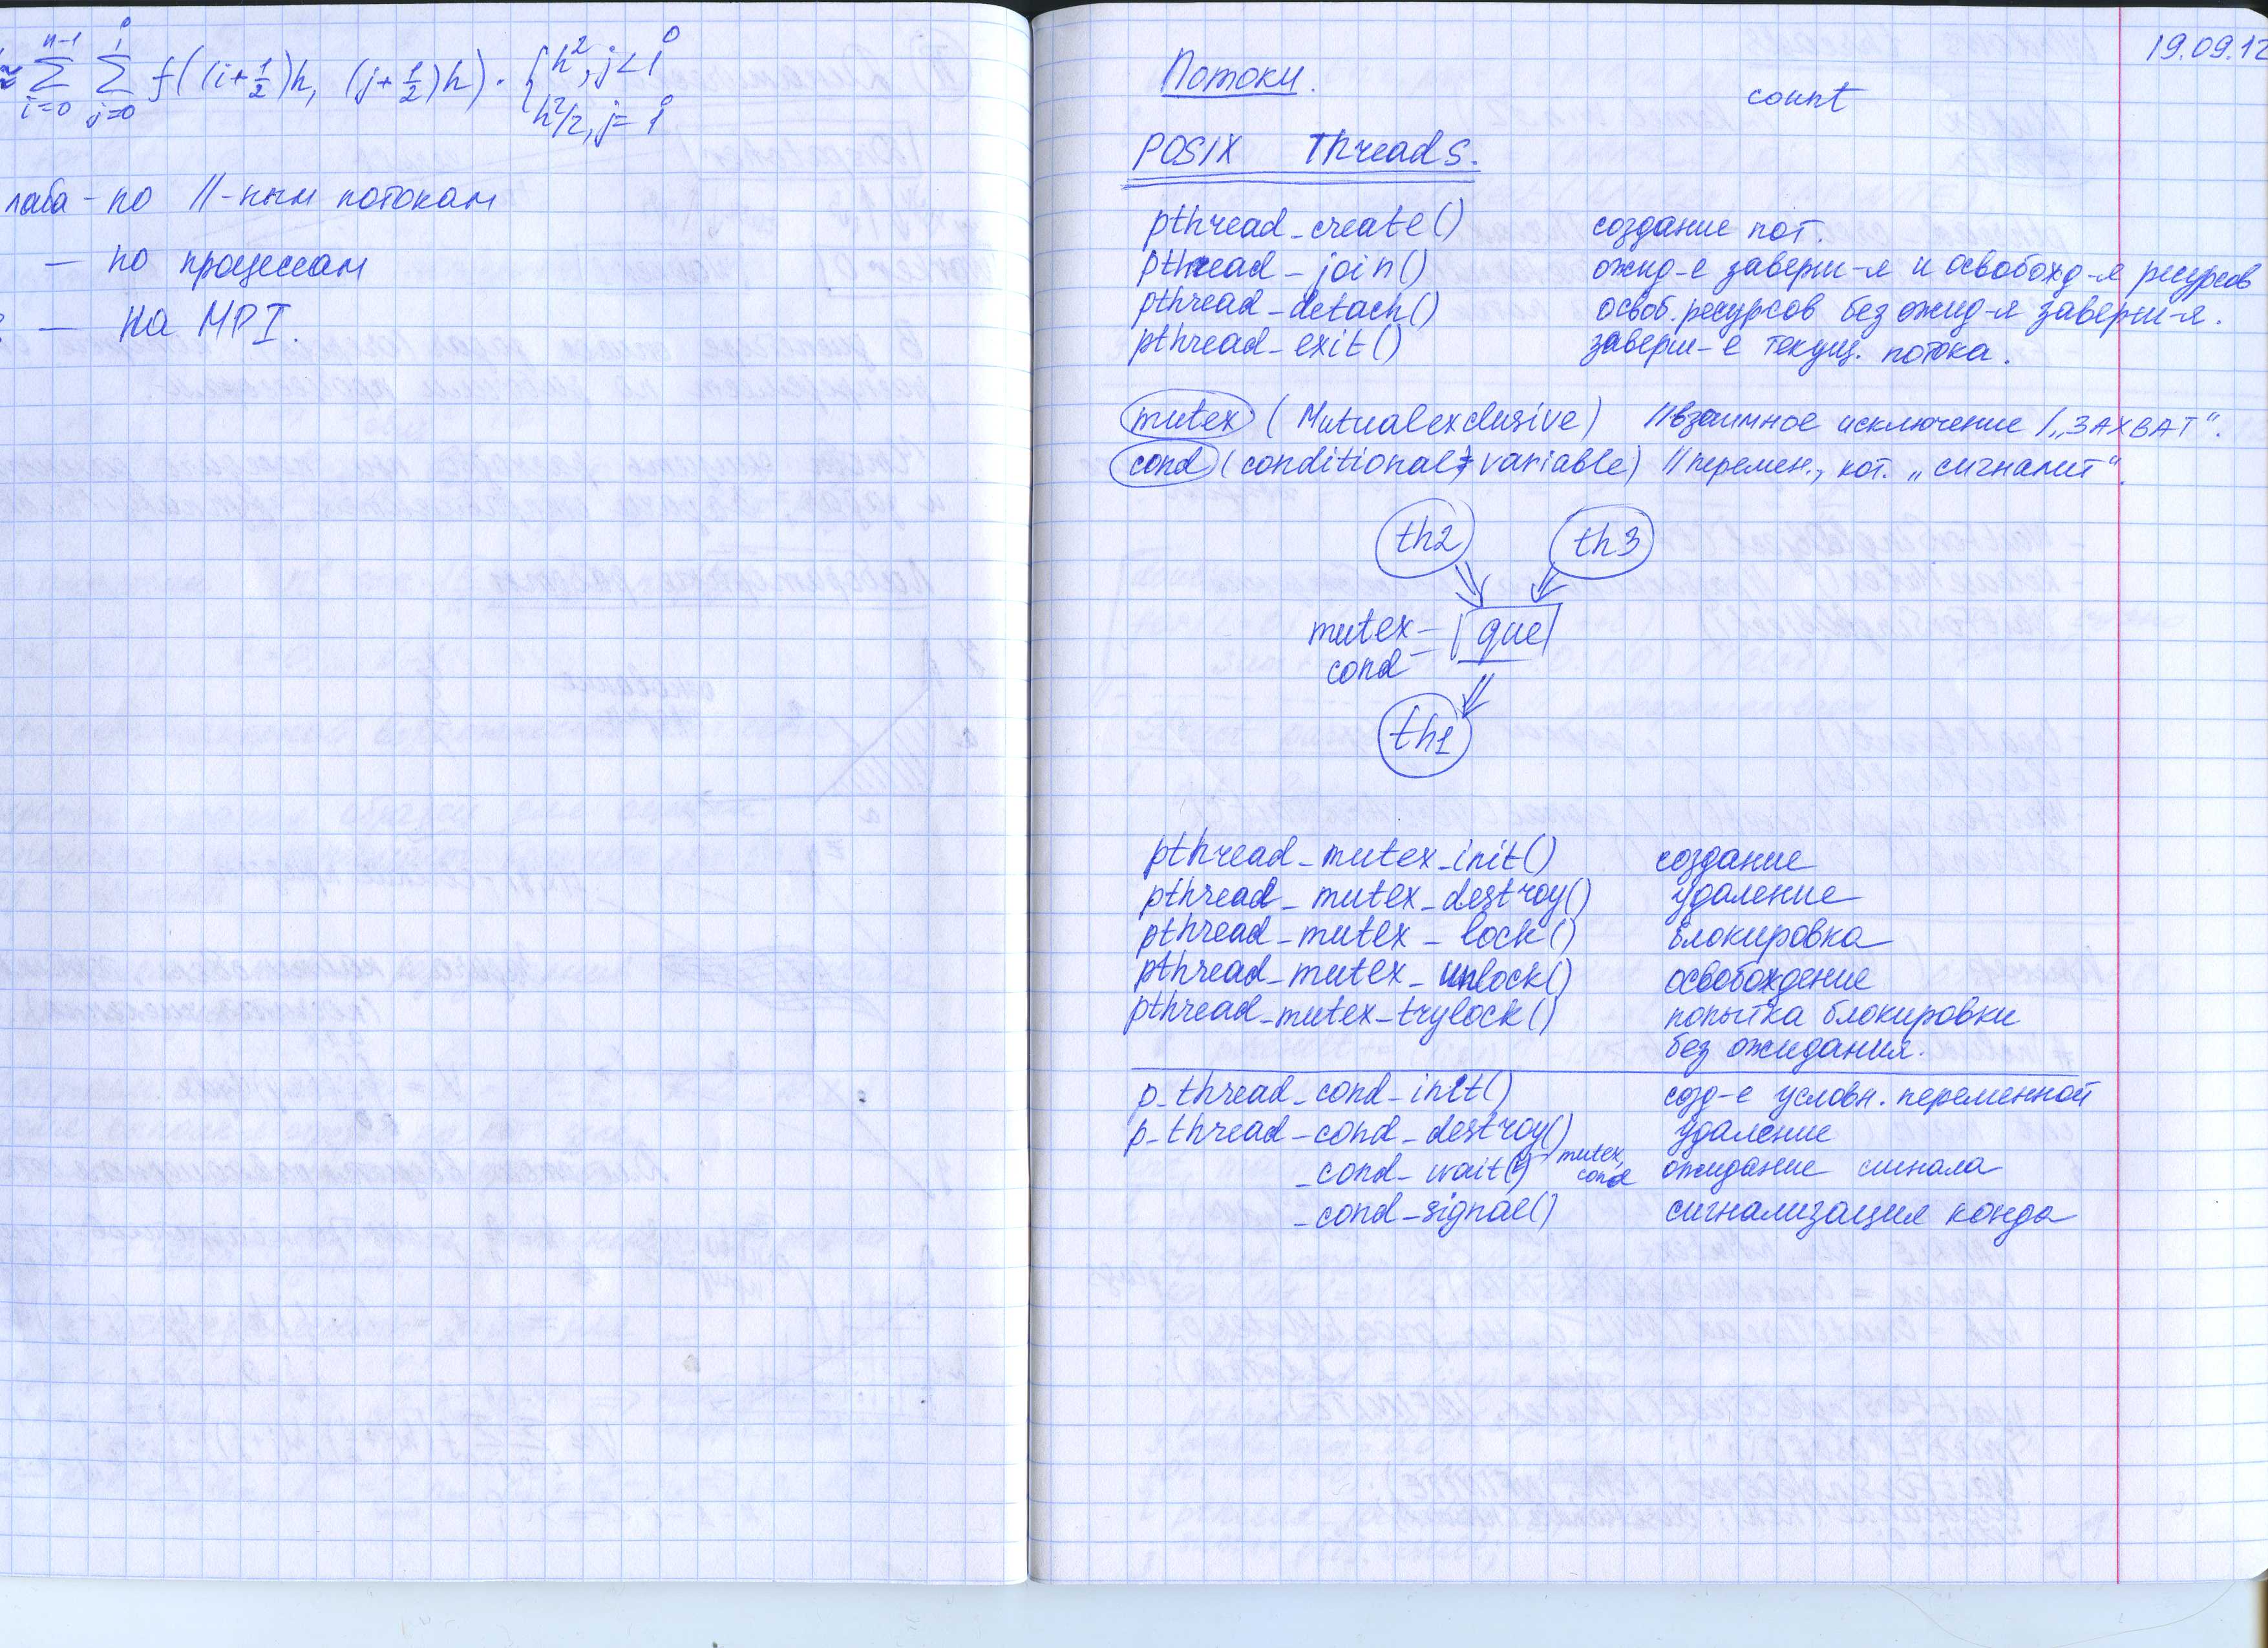 ≈ n-1 Σ i=0 i Σ j=0 f((i+1/2)h, (j+1/2)h) · { h², j<i
h²/2, j=i
лаба - по //-ным потокам
— по процессам
— на MPI.
19.09.12
Потоки.
count
POSIX Threads.
pthread_create() создание пот.
pthread_join() ожид-е заверш-я и освобожд-я ресурсов
pthread_detach() освоб. ресурсов без ожид-я заверш-я.
pthread_exit() заверш-е текущ. потока.
mutex (Mutual exclusive) // взаимное исключение / „ЗАХВАТ“.
cond (conditional variable) // перемен., кот. „сигналит“.
th2 th3
mutex — que
cond
th1
pthread_mutex_init() создание
pthread_mutex_destroy() удаление
pthread_mutex_lock() блокировка
pthread_mutex_unlock() освобождение
pthread_mutex_trylock() попытка блокировки
без ожидания.
p_thread_cond_init() созд-е условн. переменной
p_thread_cond_destroy() удаление
_cond_wait() mutex, cond ожидание сигнала
_cond_signal() сигнализация конда